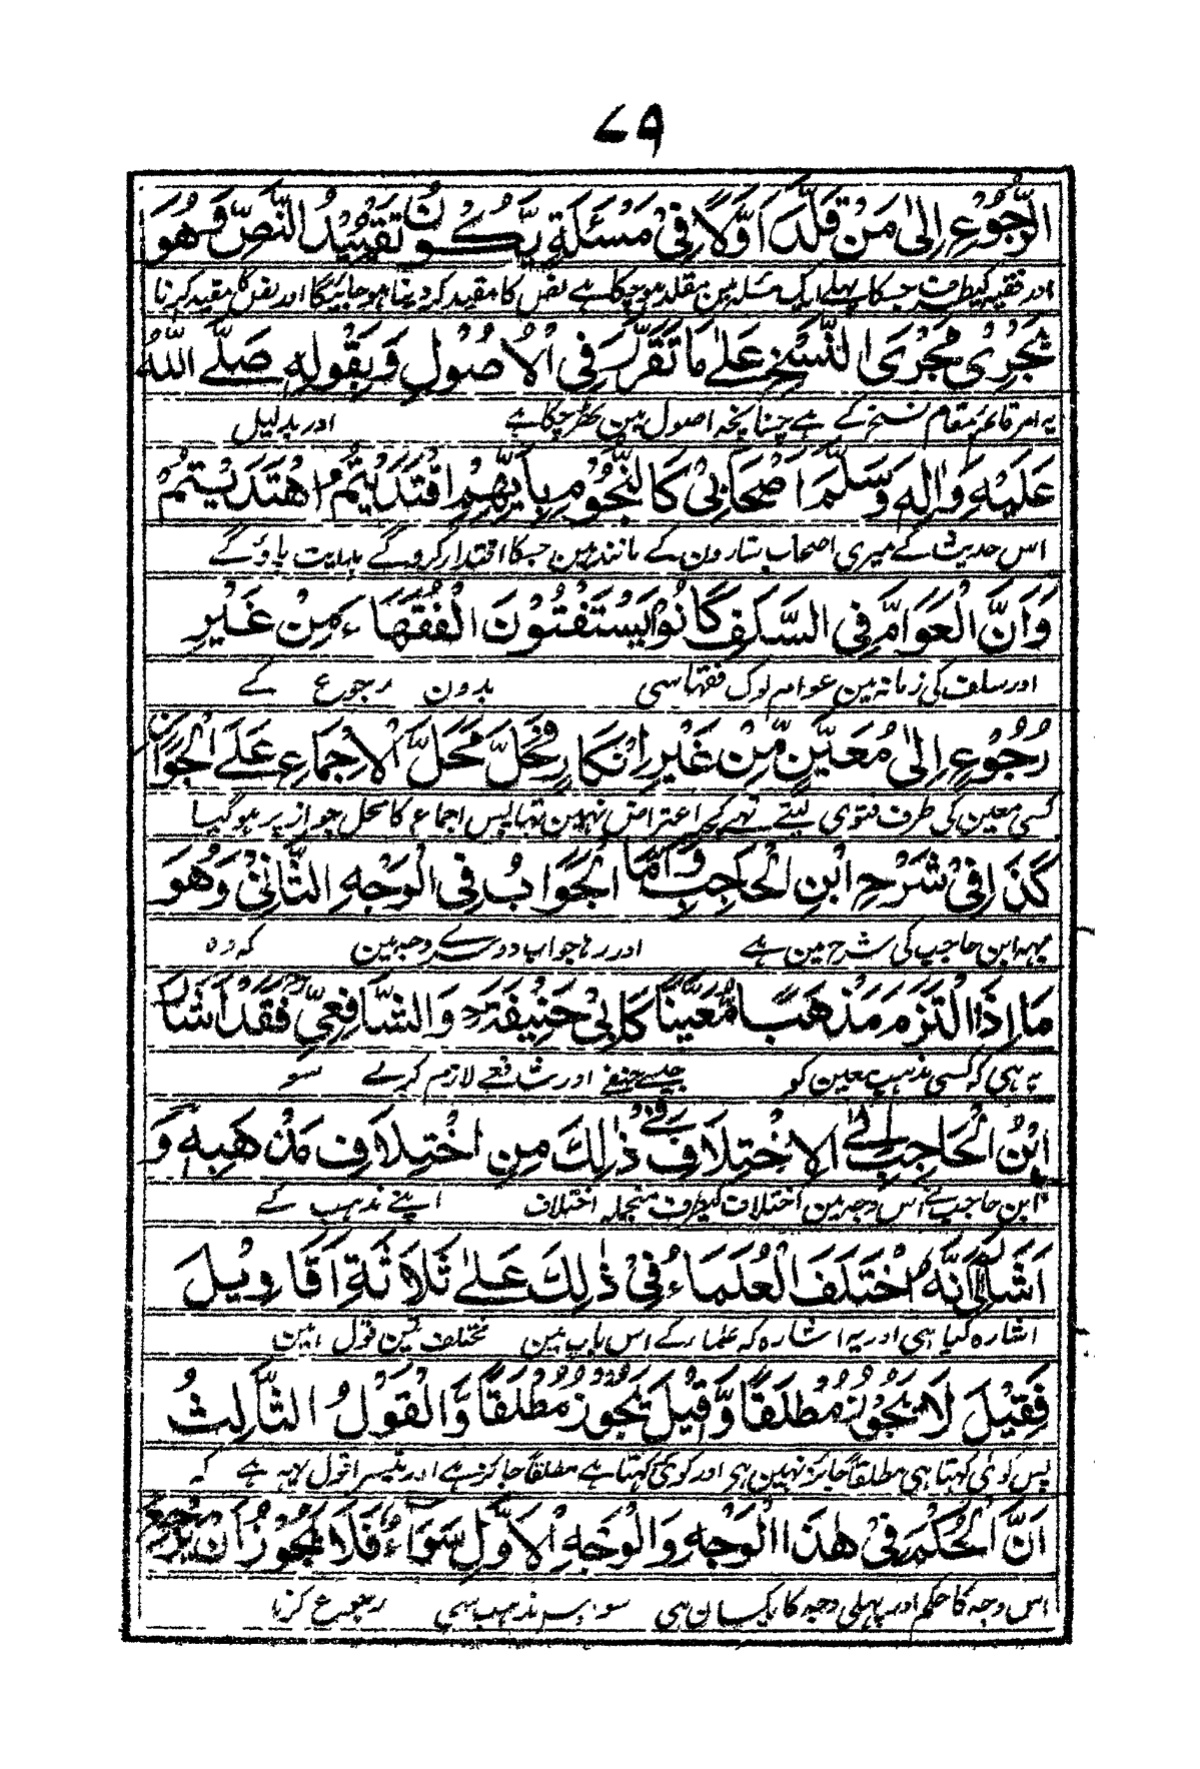 ۷۹
الرُّجُوْعِ اِلٰی مَنْ قَلَّدَ اَوَّلًا فِیْ مَسْئَلَةٍ یَّكُوْنُ تَقْیِیْدُ النَّصِّ وَهُوَ
اور فقیہ کیطرف جسکا پہلے ایک مسئلہ مین مقلد ہو چکا ہے نص کا مقید کر دینا ہو جائیگا اور نص کا مقید کرنا
یَجْرِیْ مَجْرَی النَّسْخِ عَلٰے مَا تَقَرَّرَ فِی الْاُصُوْلِ وَبِقَوْلِهٖ صَلَّے اللّٰهُ
یہ امر قائم مقام نسخ کے ہے چنانچہ اصول مین ٹھہر چکا ہے اور بدلیل
عَلَیْهِ وَاٰلِهٖ وَسَلَّمَ اَصْحَابِیْ كَالنُّجُوْمِ بِاَیِّهِمِ اقْتَدَیْتُمُ اهْتَدَیْتُمْ
اس حدیث کے میری اصحاب ستارون کے مانند ہین جسکا اقتدا کروگے ہدایت پاؤگے
وَاَنَّ الْعَوَامَّ فِی السَّلَفِ كَانُوْا یَسْتَفْتُوْنَ الْفُقَهَاءَ مِنْ غَیْرِ
اور سلف کی زمانہ مین عوام لوگ فقہا سی بدون رجوع کے
رُجُوْعٍ اِلٰی مُعَیَّنٍ مِّنْ غَیْرِ اِنْكَارٍ فَحَلَّ مَحَلَّ الْاِجْمَاعِ عَلَے الْجَوَازِ
کسی معین کی طرف فتوی لیتے تہے کچھ اعتراض نہین تہا پس اجماع کا محل جواز پر ہو گیا
كَذَا فِیْ شَرْحِ ابْنِ الْحَاجِبِ وَاَمَّا الْجَوَابُ فِی الْوَجْهِ الثَّانِیْ وَهُوَ
یہہ ابن حاجب کی شرح مین ہے اور رہا جواب دوسرے وجہ مین کہ وہ
مَا اِذَا الْتَزَمَ مَذْهَبًا مُّعَیَّنًا كَاَبِیْ حَنِیْفَةَ وَالشَّافِعِیِّ فَقَدْ اَشَارَ
یہ ہی کہ کسی مذہب معین کو جیسے حنفے اور شافعے لازم کر لے سو
ابْنُ الْحَاجِبِ اِلَی الْاِخْتِلَافِ فِیْ ذٰلِكَ مِنِ اخْتِلَافِ مَذْهَبِهٖ وَ
ابن حاجب نے اس وجہ مین اختلاف کیطرف منجملہ اختلاف اپنے مذہب کے
اَشَارَ اِلٰی اَنَّهٗ اخْتَلَفَ الْعُلَمَاءُ فِیْ ذٰلِكَ عَلٰے ثَلَاثَةِ اَقَاوِیْلَ
اشارہ کیا ہی اور یہ اشارہ کہ علما کے اس باب مین مختلف تین قول ہین
فَقِیْلَ لَا یَجُوْزُ مُطْلَقًا وَّقِیْلَ یَجُوْزُ مُطْلَقًا وَّالْقَوْلُ الثَّالِثُ
پس کوئی کہتا ہی مطلقاً جائز نہین ہی اور کوئی کہتا ہے مطلقاً جائز ہے اور تیسرا قول یہ ہے کہ
اَنَّ الْحُكْمَ فِیْ هٰذَا الْوَجْهِ وَالْوَجْهِ الْاَوَّلِ سَوَآءٌ فَلَا یَجُوْزُ اَنْ یَّرْجِعَ
اس وجہ کا حکم اور پہلی وجہ کا یکسان ہی سو اس مذہب سی رجوع کرنا